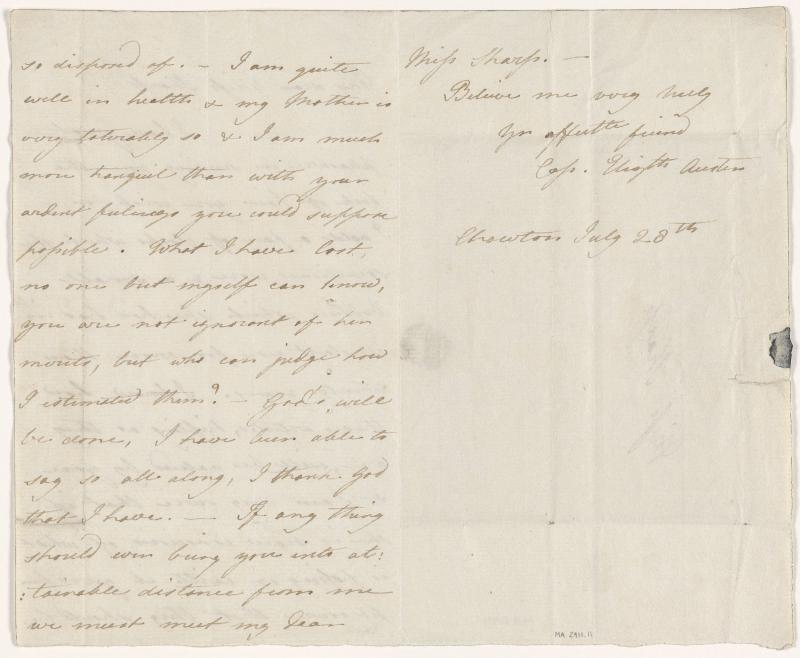 so disposed of. – I am quite
well in health & my Mother is
very tolerably so & I am much
more tranquil than with your
ardent feelings you could suppose
possible. What I have lost,
no one but myself can know,
you are not ignorant of her
merits, but who can judge how
I estimated them? – God's will
be done, I have been able to
say so all along, I thank God
that I have. – If any thing
should ever bring you into at:
:tainable distance from me
we must meet my dear
Miss Sharp. –
Believe me very truly
Yr affecte friend
Cass. Elizth Austen
Chawton July 28th
MA 2911.11